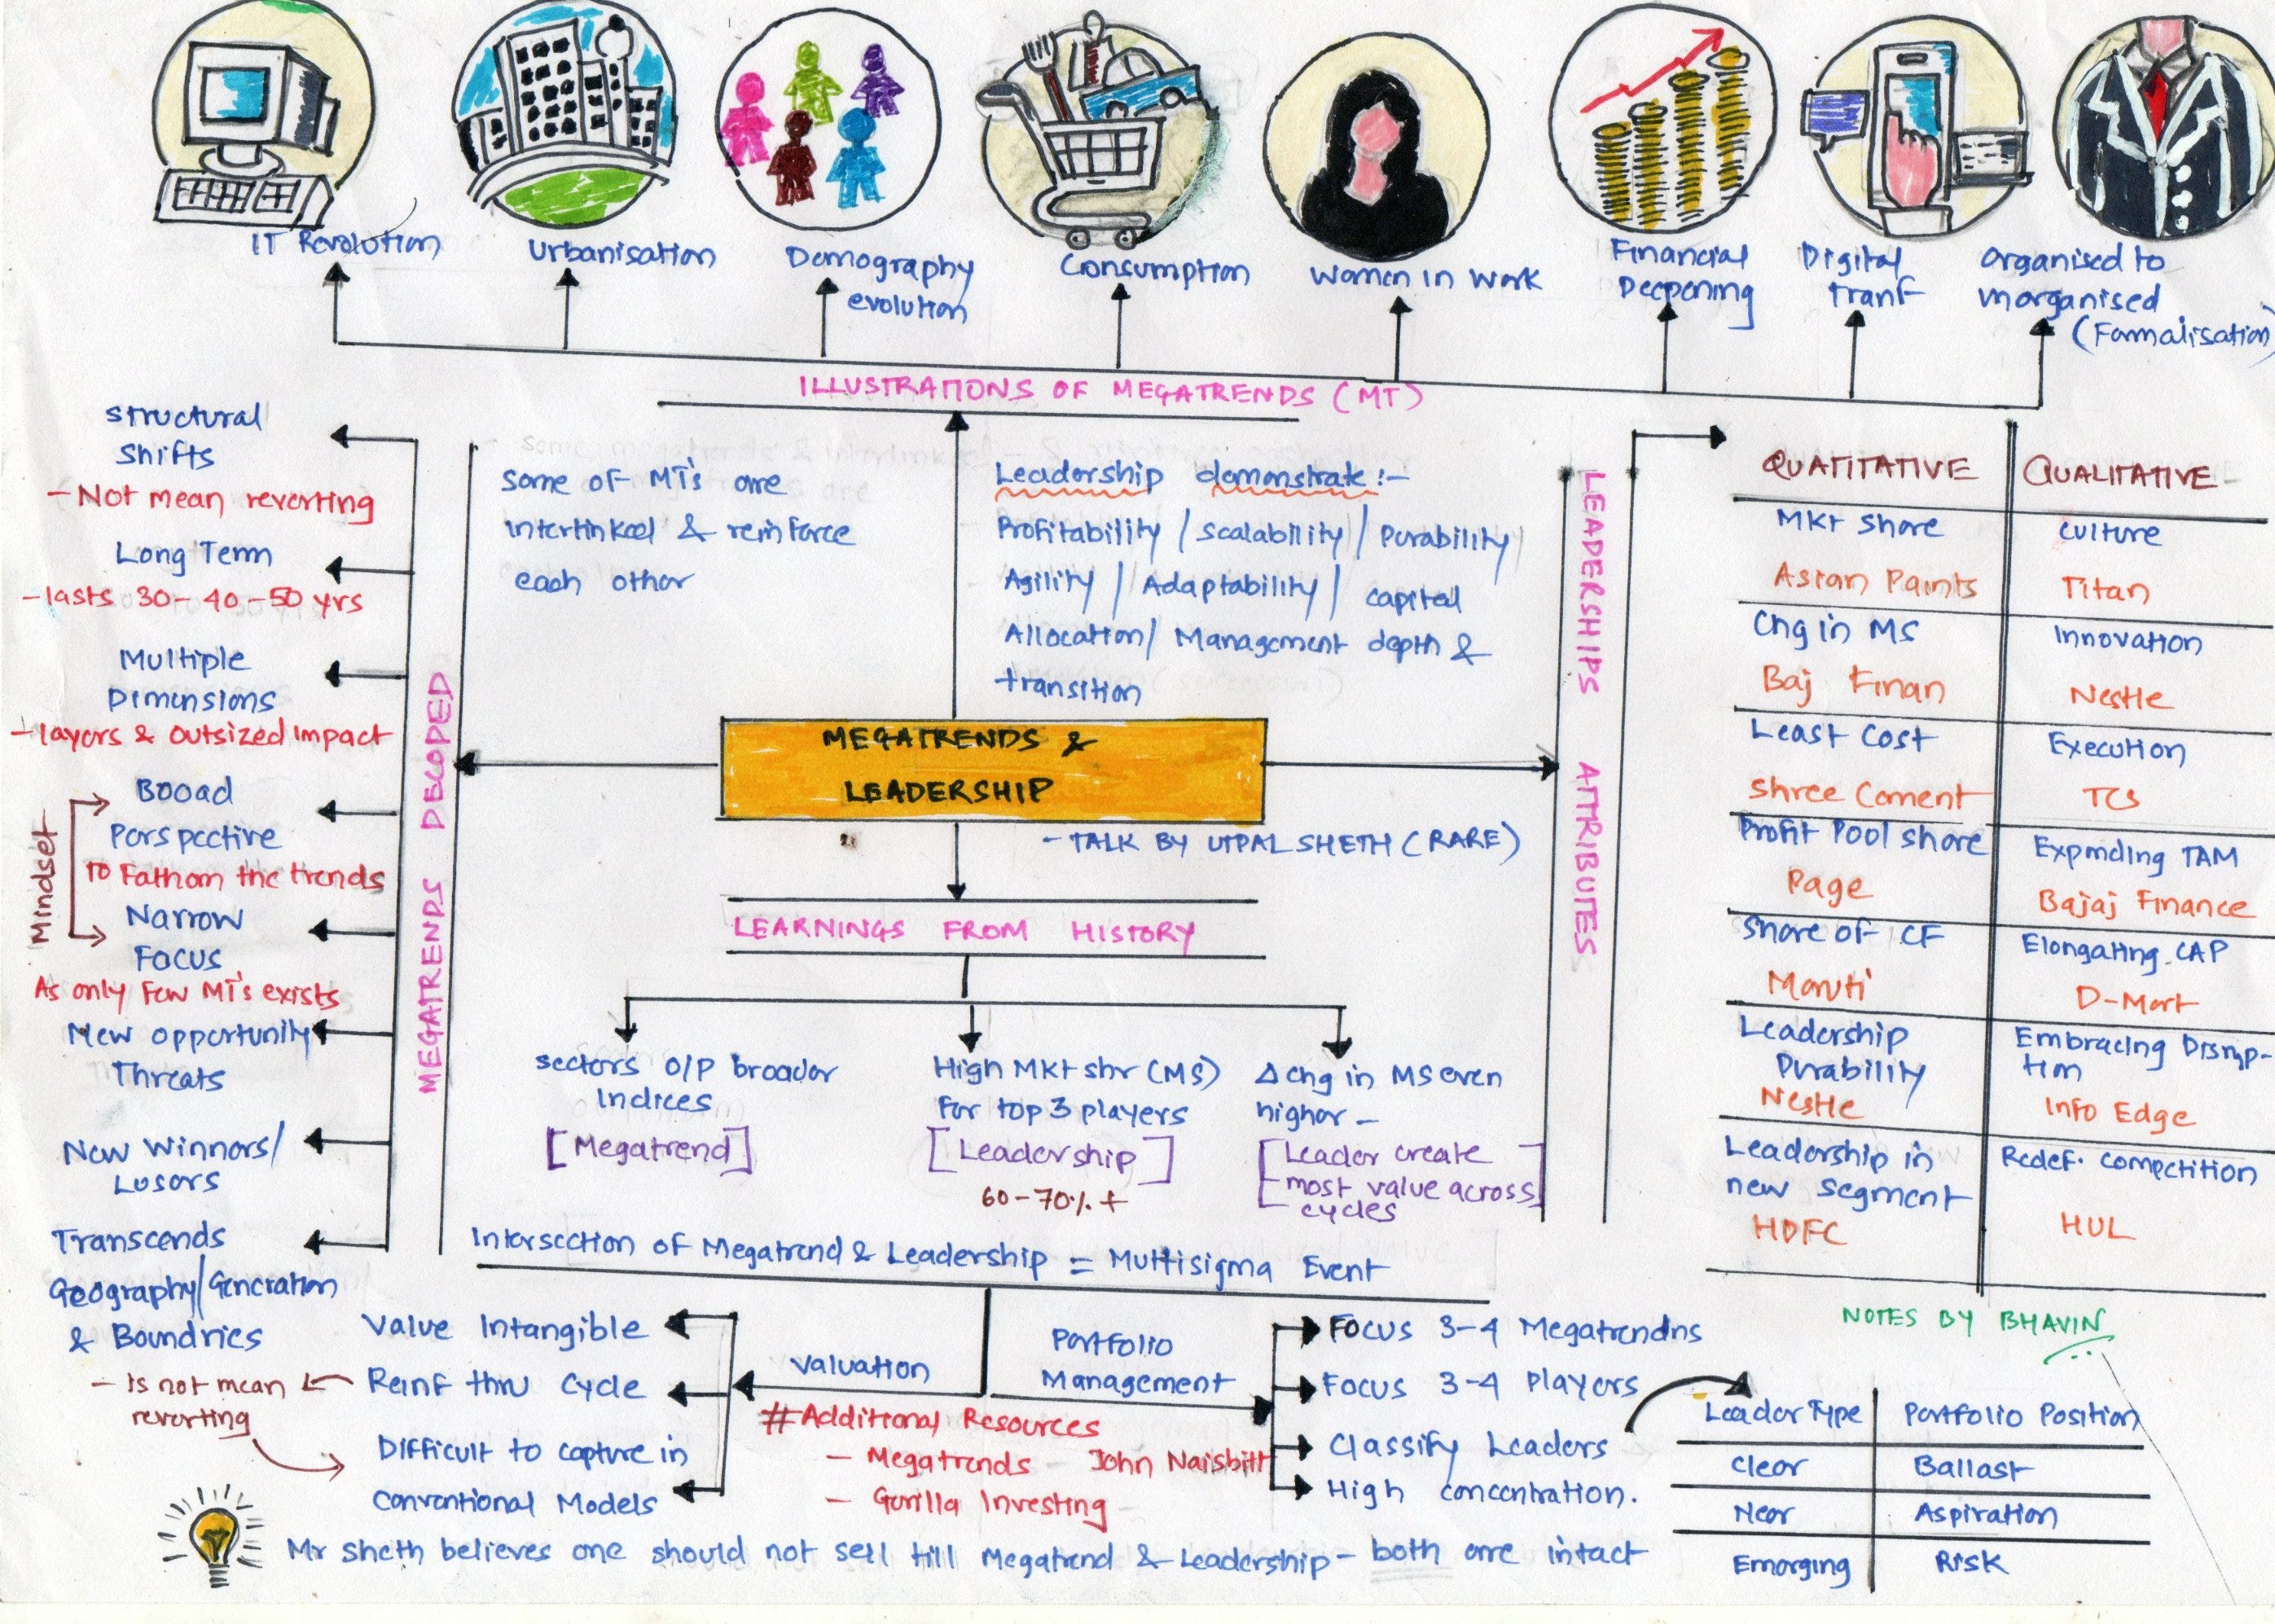 IT Revolution
Urbanisation
Demography
evolution
Consumption
Women in Work
Financial
Deepening
Digital
Tranf
Organised to
unorganised
(Formalisation)
ILLUSTRATIONS OF MEGATRENDS (MT)
MEGATRENDS DECODED
Structural
Shifts
- Not mean reverting
Long Term
- lasts 30-40-50 yrs
Multiple
Dimensions
- layers & outsized impact
Mindset
Booad
Perspective
To Fathom the trends
Narrow
Focus
As only Few MT's exists
New opportunity
Threats
New Winners/
Lusers
Transcends
Geography/Generation
& Boundries
Some of MT's are
interlinked & reinforce
each other
Leadership demonstrate :-
Profitability / Scalability / Durability
Agility / Adaptability / capital
Allocation / Management depth &
transition
MEGATRENDS &
LEADERSHIP
- TALK BY UTPAL SHETH (RARE)
LEARNINGS FROM HISTORY
Sectors O/P broader
Indices
[Megatrend]
High Mkt shr (MS)
For top 3 players
[Leadership]
60-70% +
Δ chg in MS even
higher -
[Leader create
most value across
cycles]
Intersection of Megatrend & Leadership = Multisigma Event
LEADERSHIPS ATTRIBUTES
QUATITATIVE
QUALITATIVE
Mkt Share
Culture
Asian Paints
Titan
Chg in MS
Innovation
Baj Finan
Nestle
Least Cost
Execution
Shree Cement
TCS
Profit Pool share
Expinding TAM
Page
Bajaj Finance
Share of CF
Elongating CAP
Maruti
D-Mart
Leadership
Durability
Embracing Disrup-
tion
Nestle
Info Edge
Leadership in
new segment
Redef. competition
HDFC
HUL
NOTES BY BHAVIN
Valuation
Value Intangible
Reinf thru Cycle
- Is not mean
reverting
Difficult to capture in
Conventional Models
Portfolio
Management
Focus 3-4 Megatrendns
Focus 3-4 Players
Classify Leaders
High concentration.
# Additional Resources
- Megatrends - John Naisbitt
- Gorilla Investing
Leader Type
Portfolio Position
Clear
Ballast
Near
Aspiration
Emerging
Risk
Mr Sheth believes one should not sell till Megatrend & Leadership - both are intact